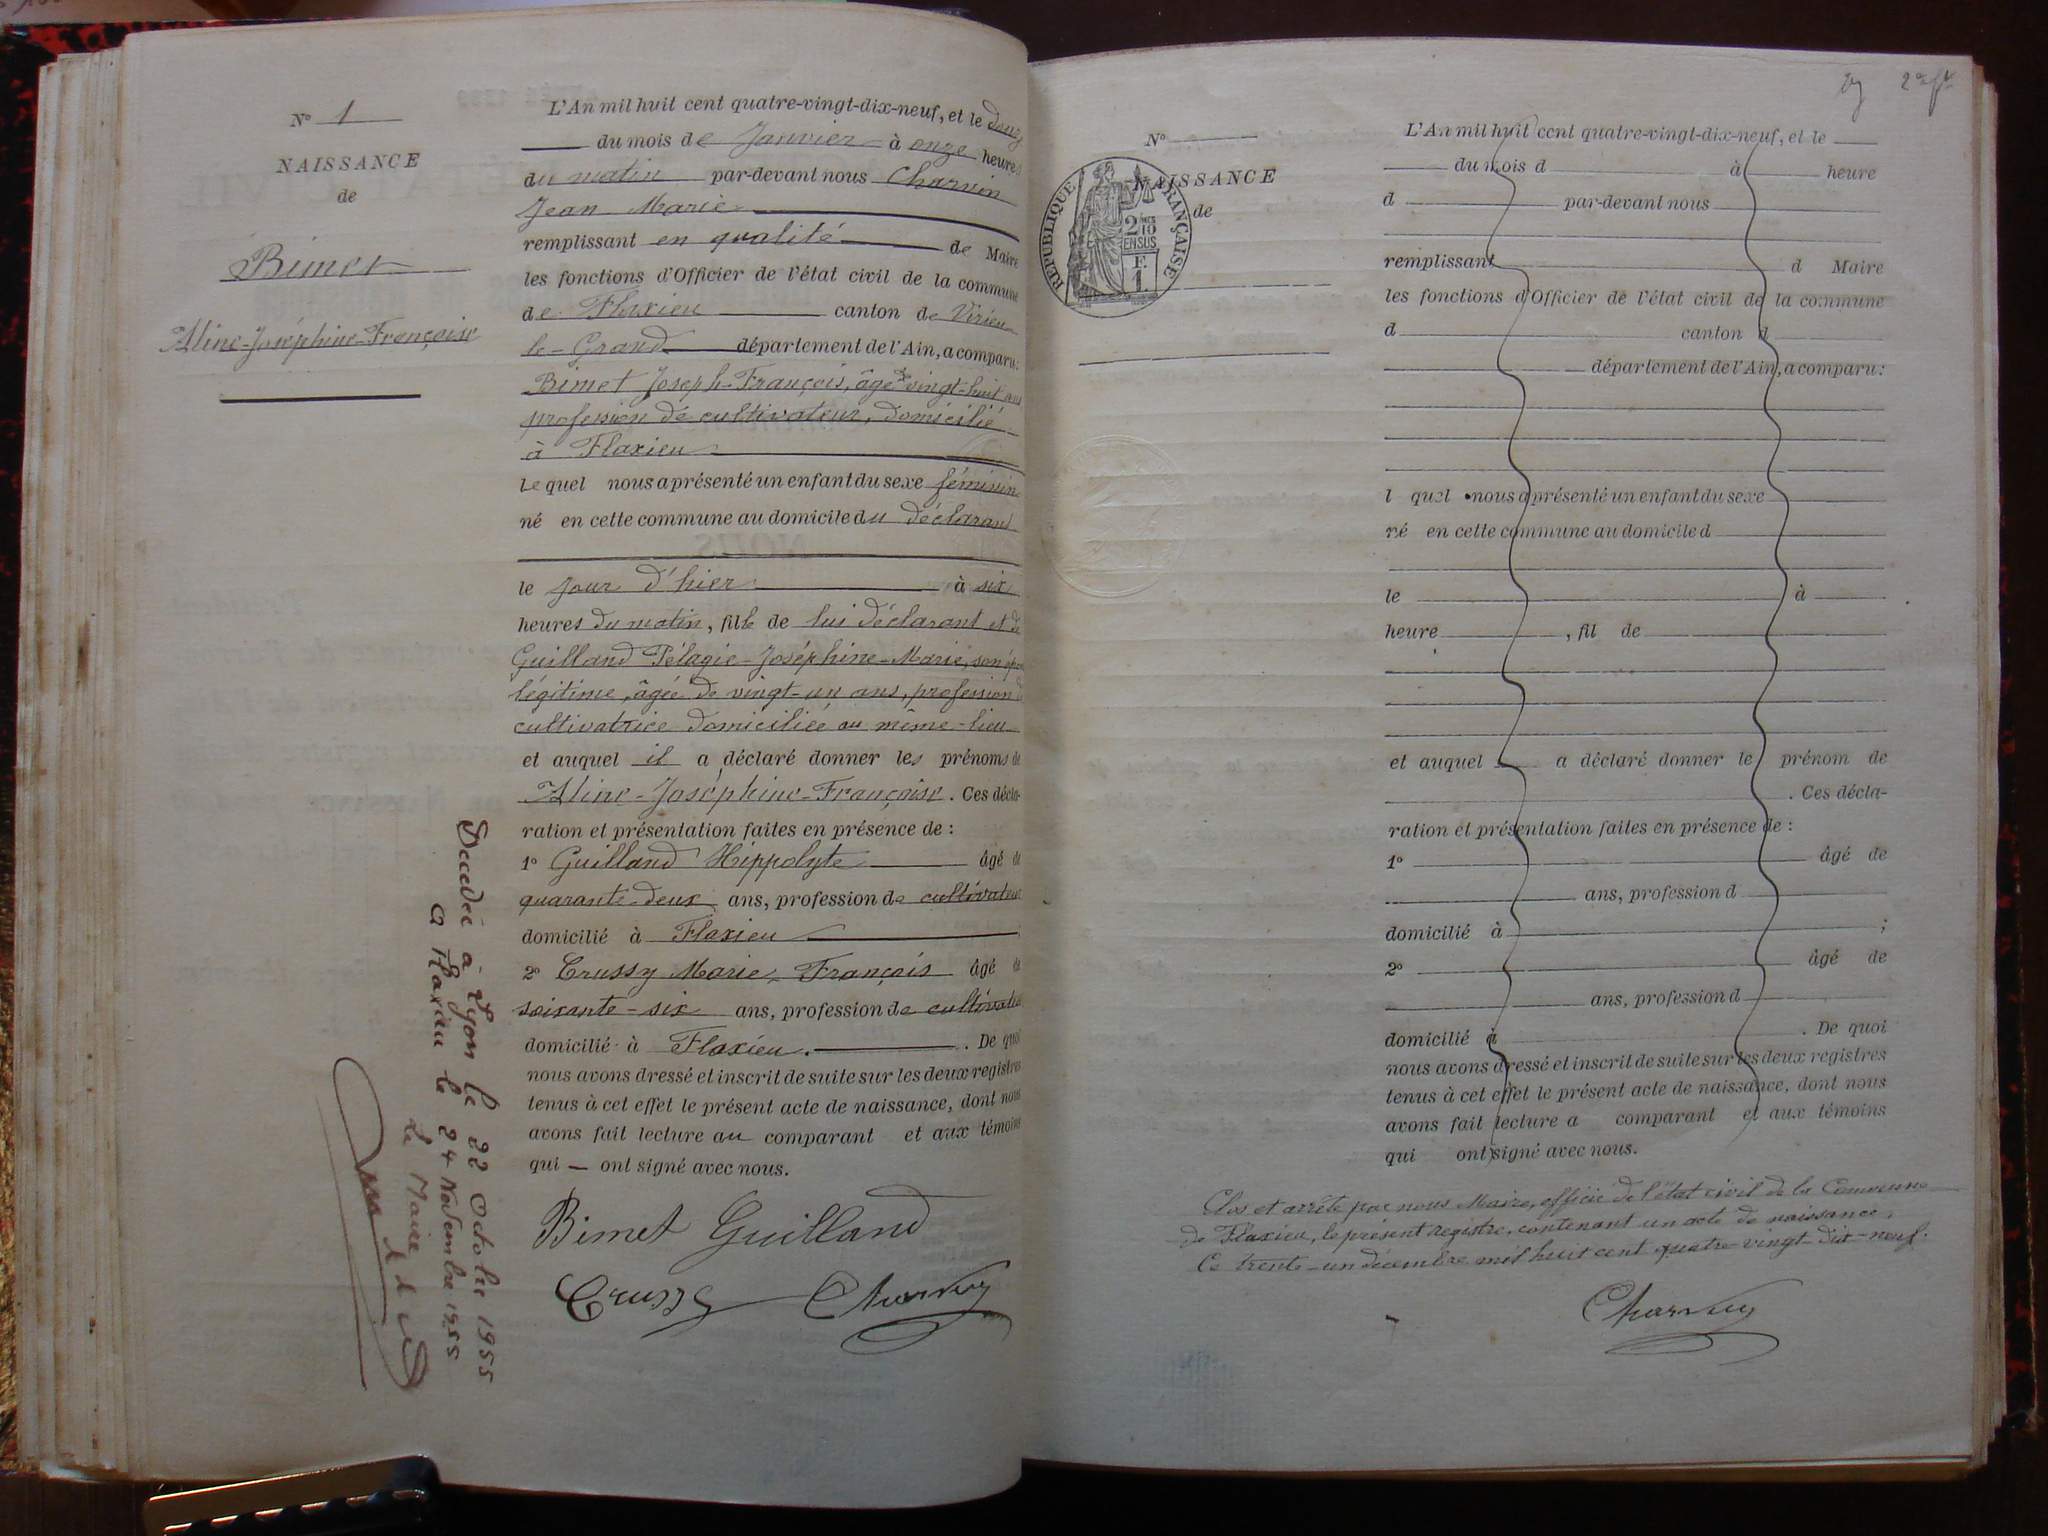 N° 1
NAISSANCE
de
Bimet
Aline-Joséphine-Françoise
L'An mil huit cent quatre-vingt-dix-neuf, et le douze
du mois de Janvier à onze heures
du matin par-devant nous Charvin
Jean Marie
remplissant en qualité de Maire
les fonctions d'Officier de l'état civil de la commune
de Flaxieu canton de Virieu
le-Grand département de l'Ain, a comparu:
Bimet Joseph-François, âgé de vingt-huit ans
profession de cultivateur, domicilié
à Flaxieu
Lequel nous a présenté un enfant du sexe féminin
né en cette commune au domicile du déclarant
le jour d'hier à six
heures du matin, fille de lui déclarant et de
Guilland Pélagie-Joséphine-Marie, son épouse
légitime, âgée de vingt-un ans, profession de
cultivatrice domiciliée au même-lieu
et auquel il a déclaré donner les prénoms de
Aline-Joséphine-Françoise. Ces décla-
ration et présentation faites en présence de :
1° Guilland Hippolyte âgé de
quarante-deux ans, profession de cultivateur
domicilié à Flaxieu
2° Crussy Marie-François âgé de
soixante-six ans, profession de cultivateur
domicilié à Flaxieu. De quoi
nous avons dressé et inscrit de suite sur les deux registres
tenus à cet effet le présent acte de naissance, dont nous
avons fait lecture au comparant et aux témoins
qui — ont signé avec nous.
Bimet Guilland
Crussy Charvin
Decedée à Lyon le 22 Octobre 1955
a Flaxieu le 24 Novembre 1955
Le Maire
2
N°
NAISSANCE
de
REPUBLIQUE FRANÇAISE
2/10
EN SUS
F.
1.
L'An mil huit cent quatre-vingt-dix-neuf, et le
du mois d à heure
d par-devant nous
remplissant d Maire
les fonctions d'Officier de l'état civil de la commune
d canton d
département de l'Ain, a comparu:
l quel nous a présenté un enfant du sexe
né en cette commune au domicile d
le à
heure , fil de
et auquel a déclaré donner le prénom de
. Ces décla-
ration et présentation faites en présence de :
1° âgé de
ans, profession d
domicilié à ;
2° âgé de
ans, profession d
domicilié à . De quoi
nous avons dressé et inscrit de suite sur les deux registres
tenus à cet effet le présent acte de naissance, dont nous
avons fait lecture a comparant et aux témoins
qui ont signé avec nous.
Clos et arrêté par nous Maire, officier de l'état civil de la Commune
de Flaxieu, le présent registre, contenant un acte de naissance,
Ce trente-un décembre mil huit cent quatre-vingt-dix-neuf.
Charvin